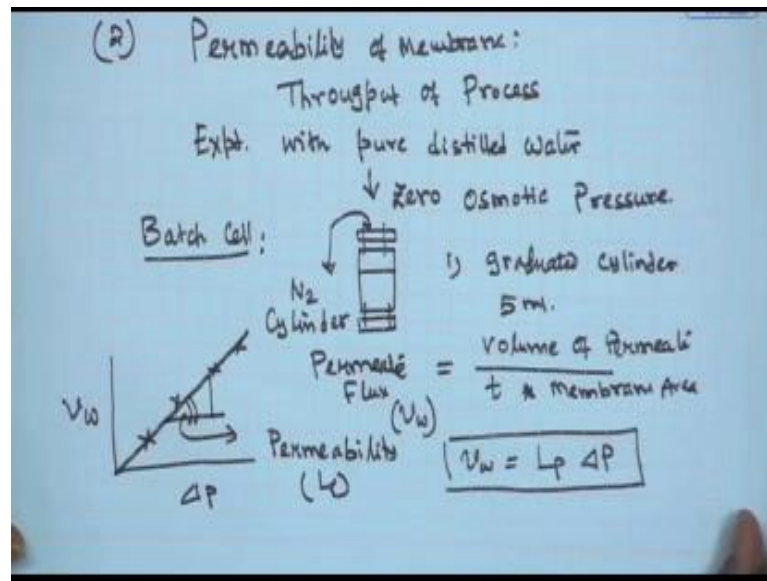 (2) Permeability of Membrane:
Througput of Process
Expt. with pure distilled water
↓ Zero Osmotic Pressure.
Batch Cell:
N2
Cylinder
1) graduated cylinder
5 ml.
Permeate Flux (Vw) = volume of Permeate / t * Membrane Area
Vw
ΔP
Permeability
(Lp)
Vw = Lp ΔP